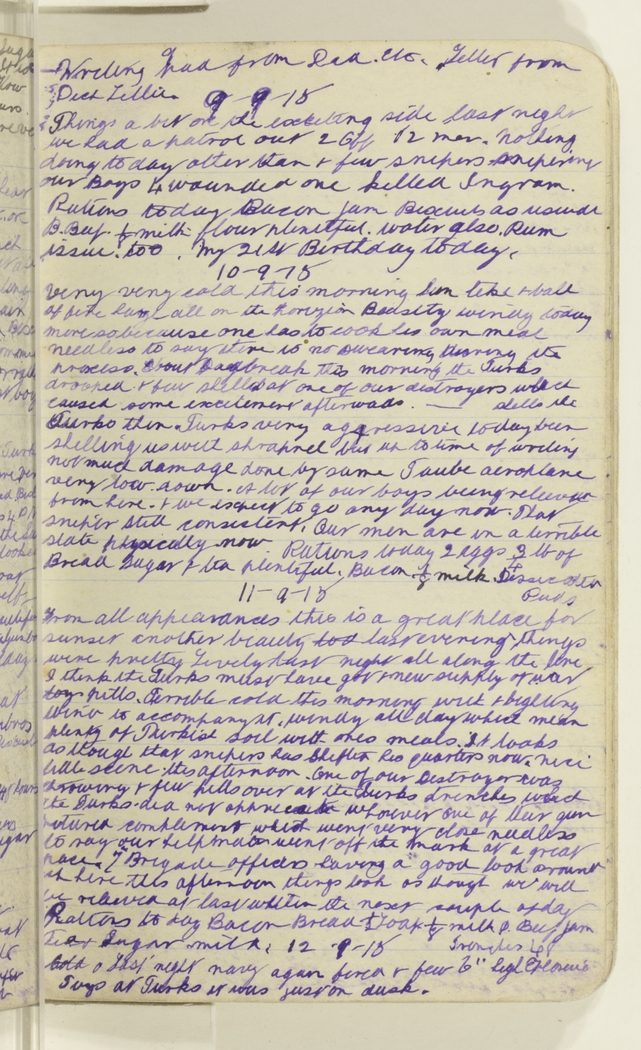 Writing Pad from Dad. etc. Letter from
Dick Lillie.
9 - 9 - 15
Things a bit on the exciting side last night
we had a patrol out 2 Off 12 men. nothing
doing today other than a few snipers snipering
our Boys 4 wounded one killed Ingram.
Rations today Bacon Jam Biscuits as usual
B. Beef milk flour plentiful. water also. Rum
issue. too. My 21st Birthday today.
10-9-15
Very very cold this morning Sun like a ball
of fire large all on the horizon Beastly windy today
more so because one has to cook his own meal
needless to say there is no swearing during the
process. About Daybreak this morning the Turks
dropped a few shells at one of our destroyers which
caused some excitement afterwards. — shells the
Turks then. Turks very aggressive today been
shelling us with shrapnel but up to time of writing
not much damage done by same Taube aeroplane
very low down. A lot of our boys being relieved
from here. & we expect to go any day now. That
sniper still consistent. Our men are in a terrible
state physically now Rations today 2 eggs ¾ lb of
Bread Sugar & tea plentiful. Bacon milk.
11-9-15
From all appearances this is a great place for
sunset another beauty last evening things
were pretty lively last night all along the line
I think the Turks must have got a new supply of war
pills. Terrible cold this morning with a biting
wind to accompany it. windy all day which mean
plenty of Turkish soil with ones meals. It looks
as though that snipers has shifted his quarters now. nice
little scene this afternoon. One of our Destroyer was
throwing a few pills over at the Turks trenches which
the Turks did not appreciate whoever one of their gun
retured complement which went very close needless
to say our helpmate went off the mark at a great
pace. 7th Brigade officers having a good look around
up here this afternoon things look as though we will
be relieved at last within the next couple of day
Rations to day Bacon Bread ½ loaf milk B. Beef Jam
Tea Sugar milk. 12-9-15
Last night navy again fired a few 6" high Explosive
at Turks it was just on dusk.